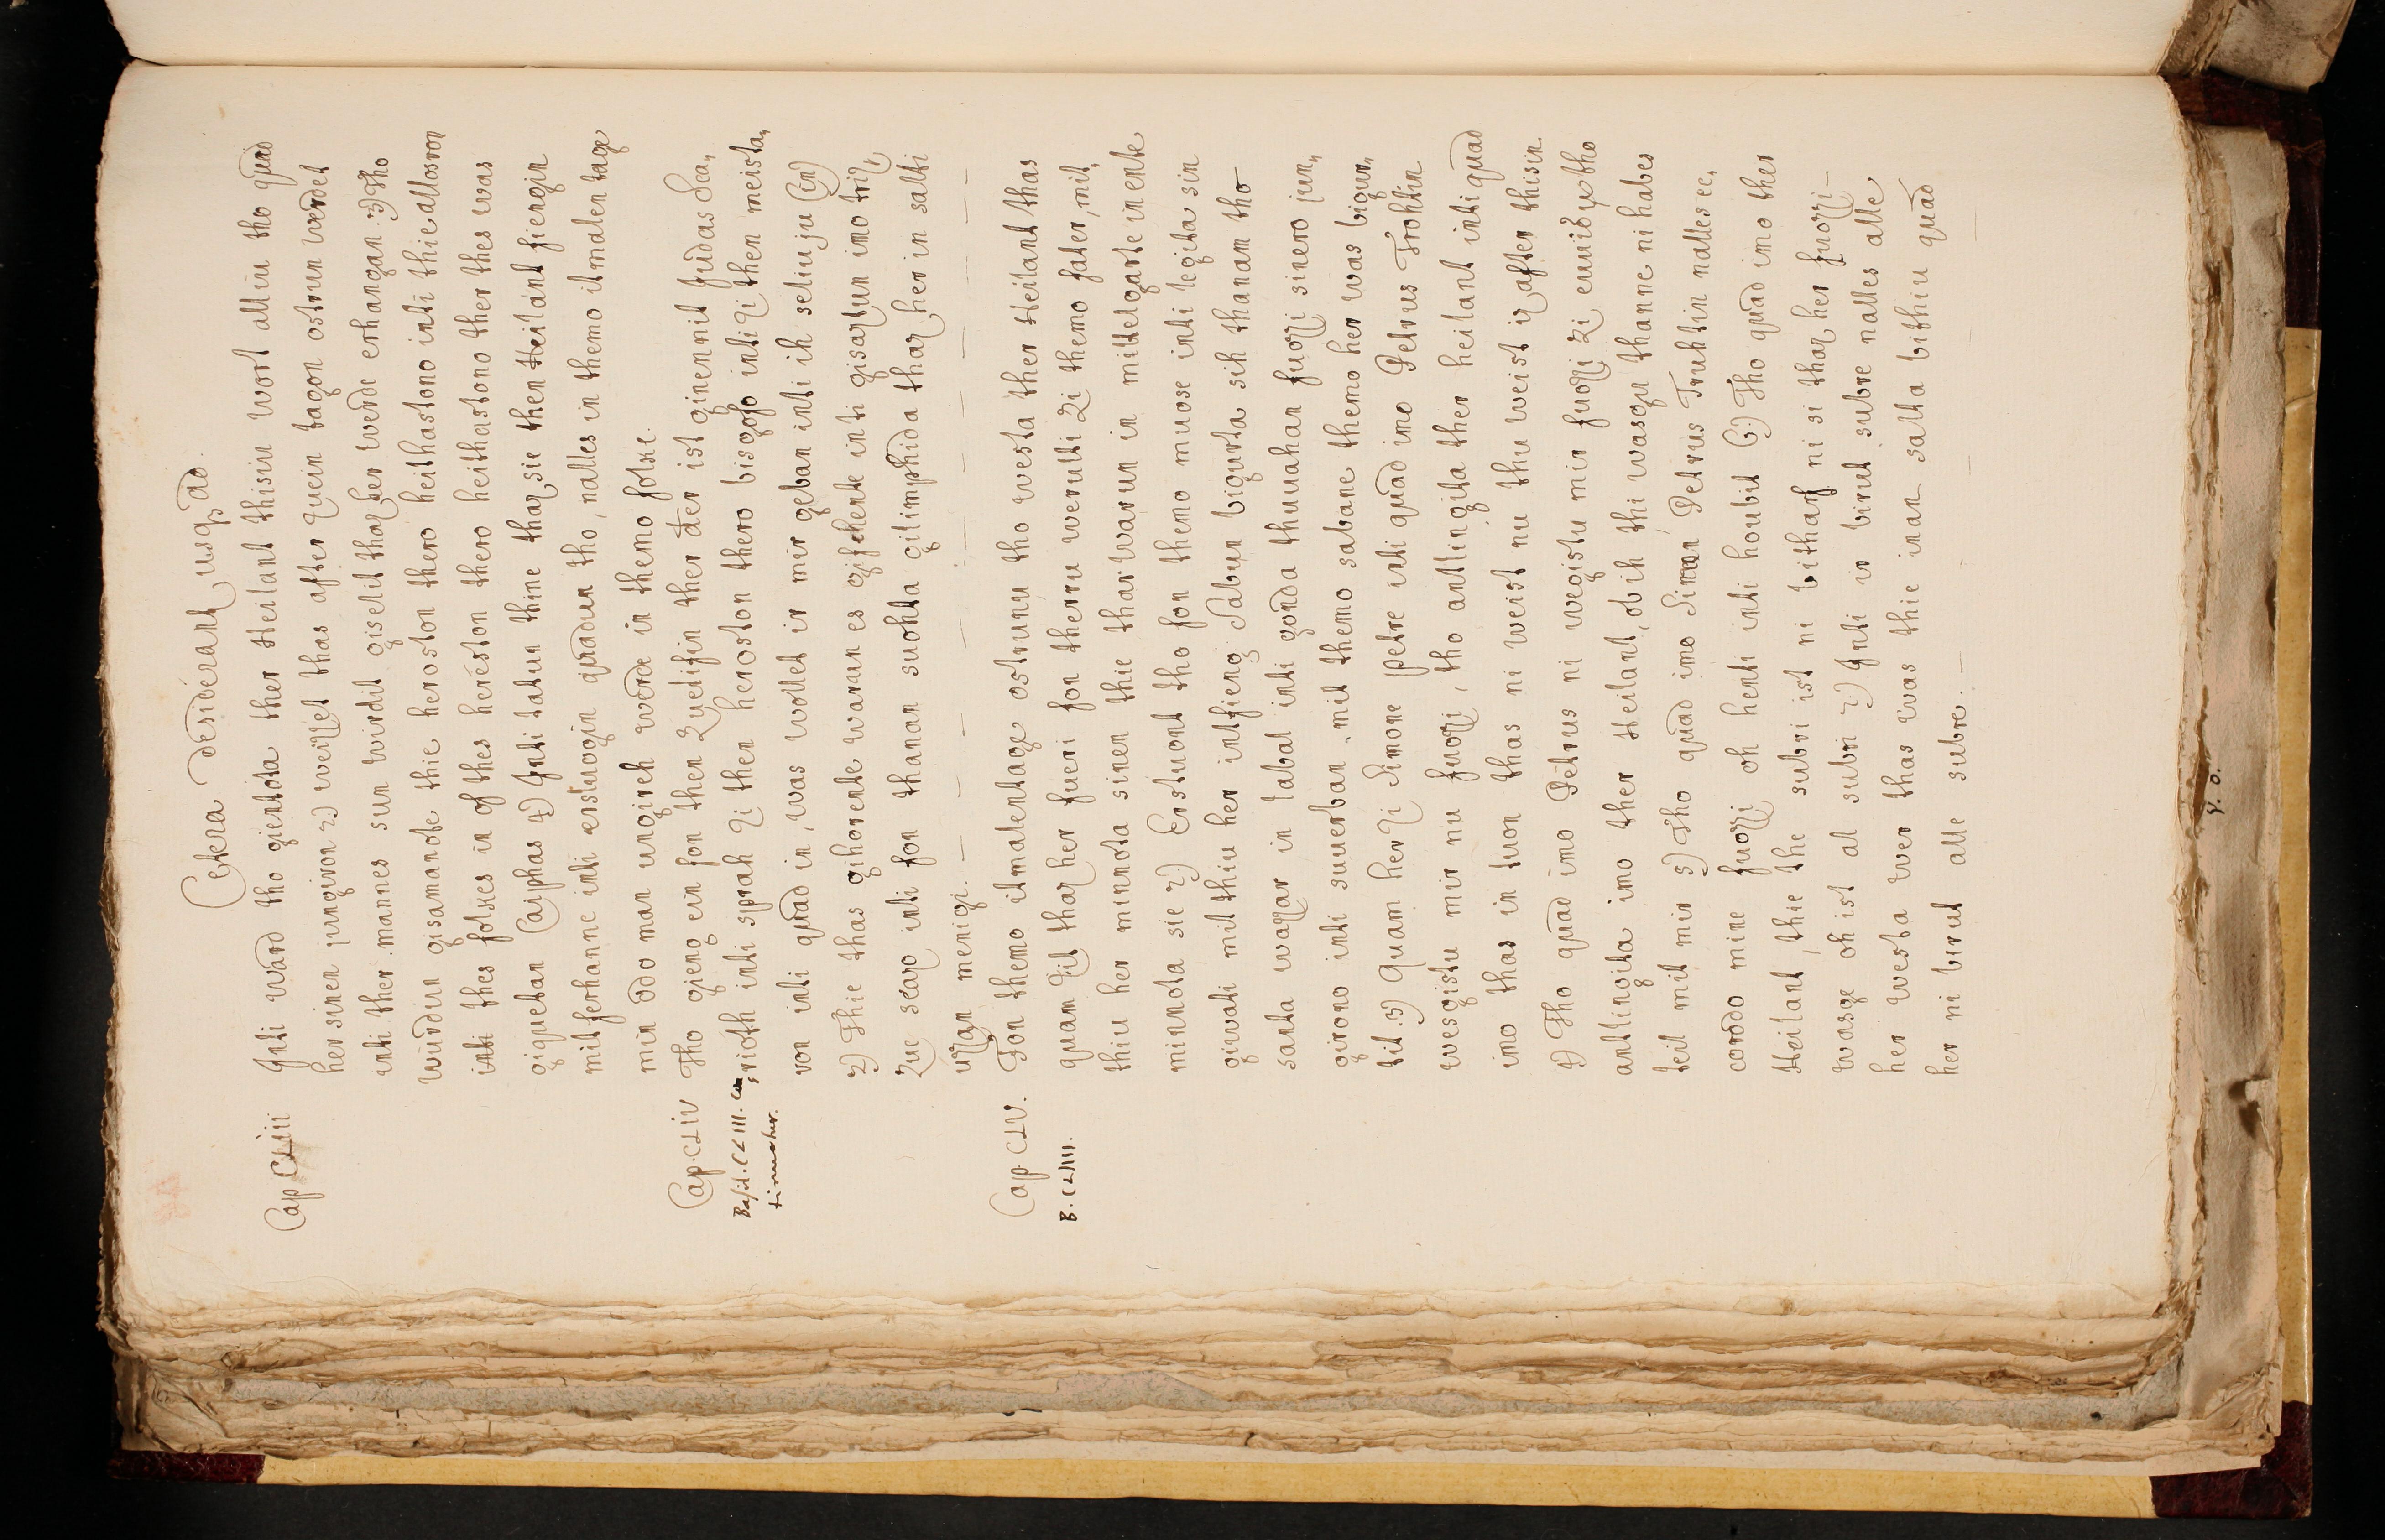 Cetera desiderant usq ad.
Cap CLiii Inti ward tho gientota ther Heilant thisiu wort alliu tho quad
her sinen jungiron 2) weizzet thas after zuein tagon ostrun werdet
inti ther mannes sun wirdit giselit thaz her werde erhangan. 3) Tho
wurdun gisamanote thie heroston thero heithastono inti thie altoston
inti thes folkes in of thes héreston thero heithastono ther thes was
giquetan Caiphas 4) Inti tatun thine thaz sie then Heilant fiengin
mit ferhanne inti erstuogin quadun tho, nalles in themo itmalen tage
min odo man ungireh werde in themo folke.
Cap. CLIV Tho gieng ein fon then zuelifin ther der ist ginemnit Judas Sca„
Basil. CLIII. con
tinuatur.
rioth inti sprah zi then heroston thero bisgofo inti zi then meista„
ron inti quad in, was wollet ir mir geban inti ih seliu ju (in)
2) Thie thas gihorente warun es gifehente inti gisaztun imo triz„
zuc scazo inti fon thanan suohta gilimphida thaz her in salti
uzan menigi.
Cap CLV. Fon themo itmalentage ostrunu tho westa ther Heilant thas
B. CLIIII.
quam zit thaz her fueri fon therru werulti zi themo fater, mit„
thiu her minnota sinen thie thar warun in mittelgarte in ente
minnota sie 2) Erstuont tho fon themo muose inti legita sin
giwati mit thiu her intfieng sabun bigurta sih thanam tho
santa wazar in labal inti gonda thuuahan fuozi sinero jun„
girono inti suuerban, mit themo sabane themo her was bigur„
tit. 3) Quam her zi Simone petre inti quad imo Petrus Trohtin
wesgistu mir nu fuozi, tho antlingita ther heilant inti quad
imo thas in tuon thas ni weist nu thu weist iz after thisin.
4) Tho quad imo Petrus ni wegistu mir fuozi zi euuidu tho
antlingita imo ther Heilant, ob ih thi wasgu thanne ni habes
teil mit mir 5) Tho quad imo Simon Petrus Truhtin nalles ec„
corodo mine fuozi oh henti inti houbit 6) Tho quad imo ther
Heilant, thie the subri ist ni bitharf ni si thaz her fuozi
wasge oh ist al subri 7) Inti ir birut subre nalles alle
her westa wer thas was thie inan salta bithiu quad
her ni birut alle subre.